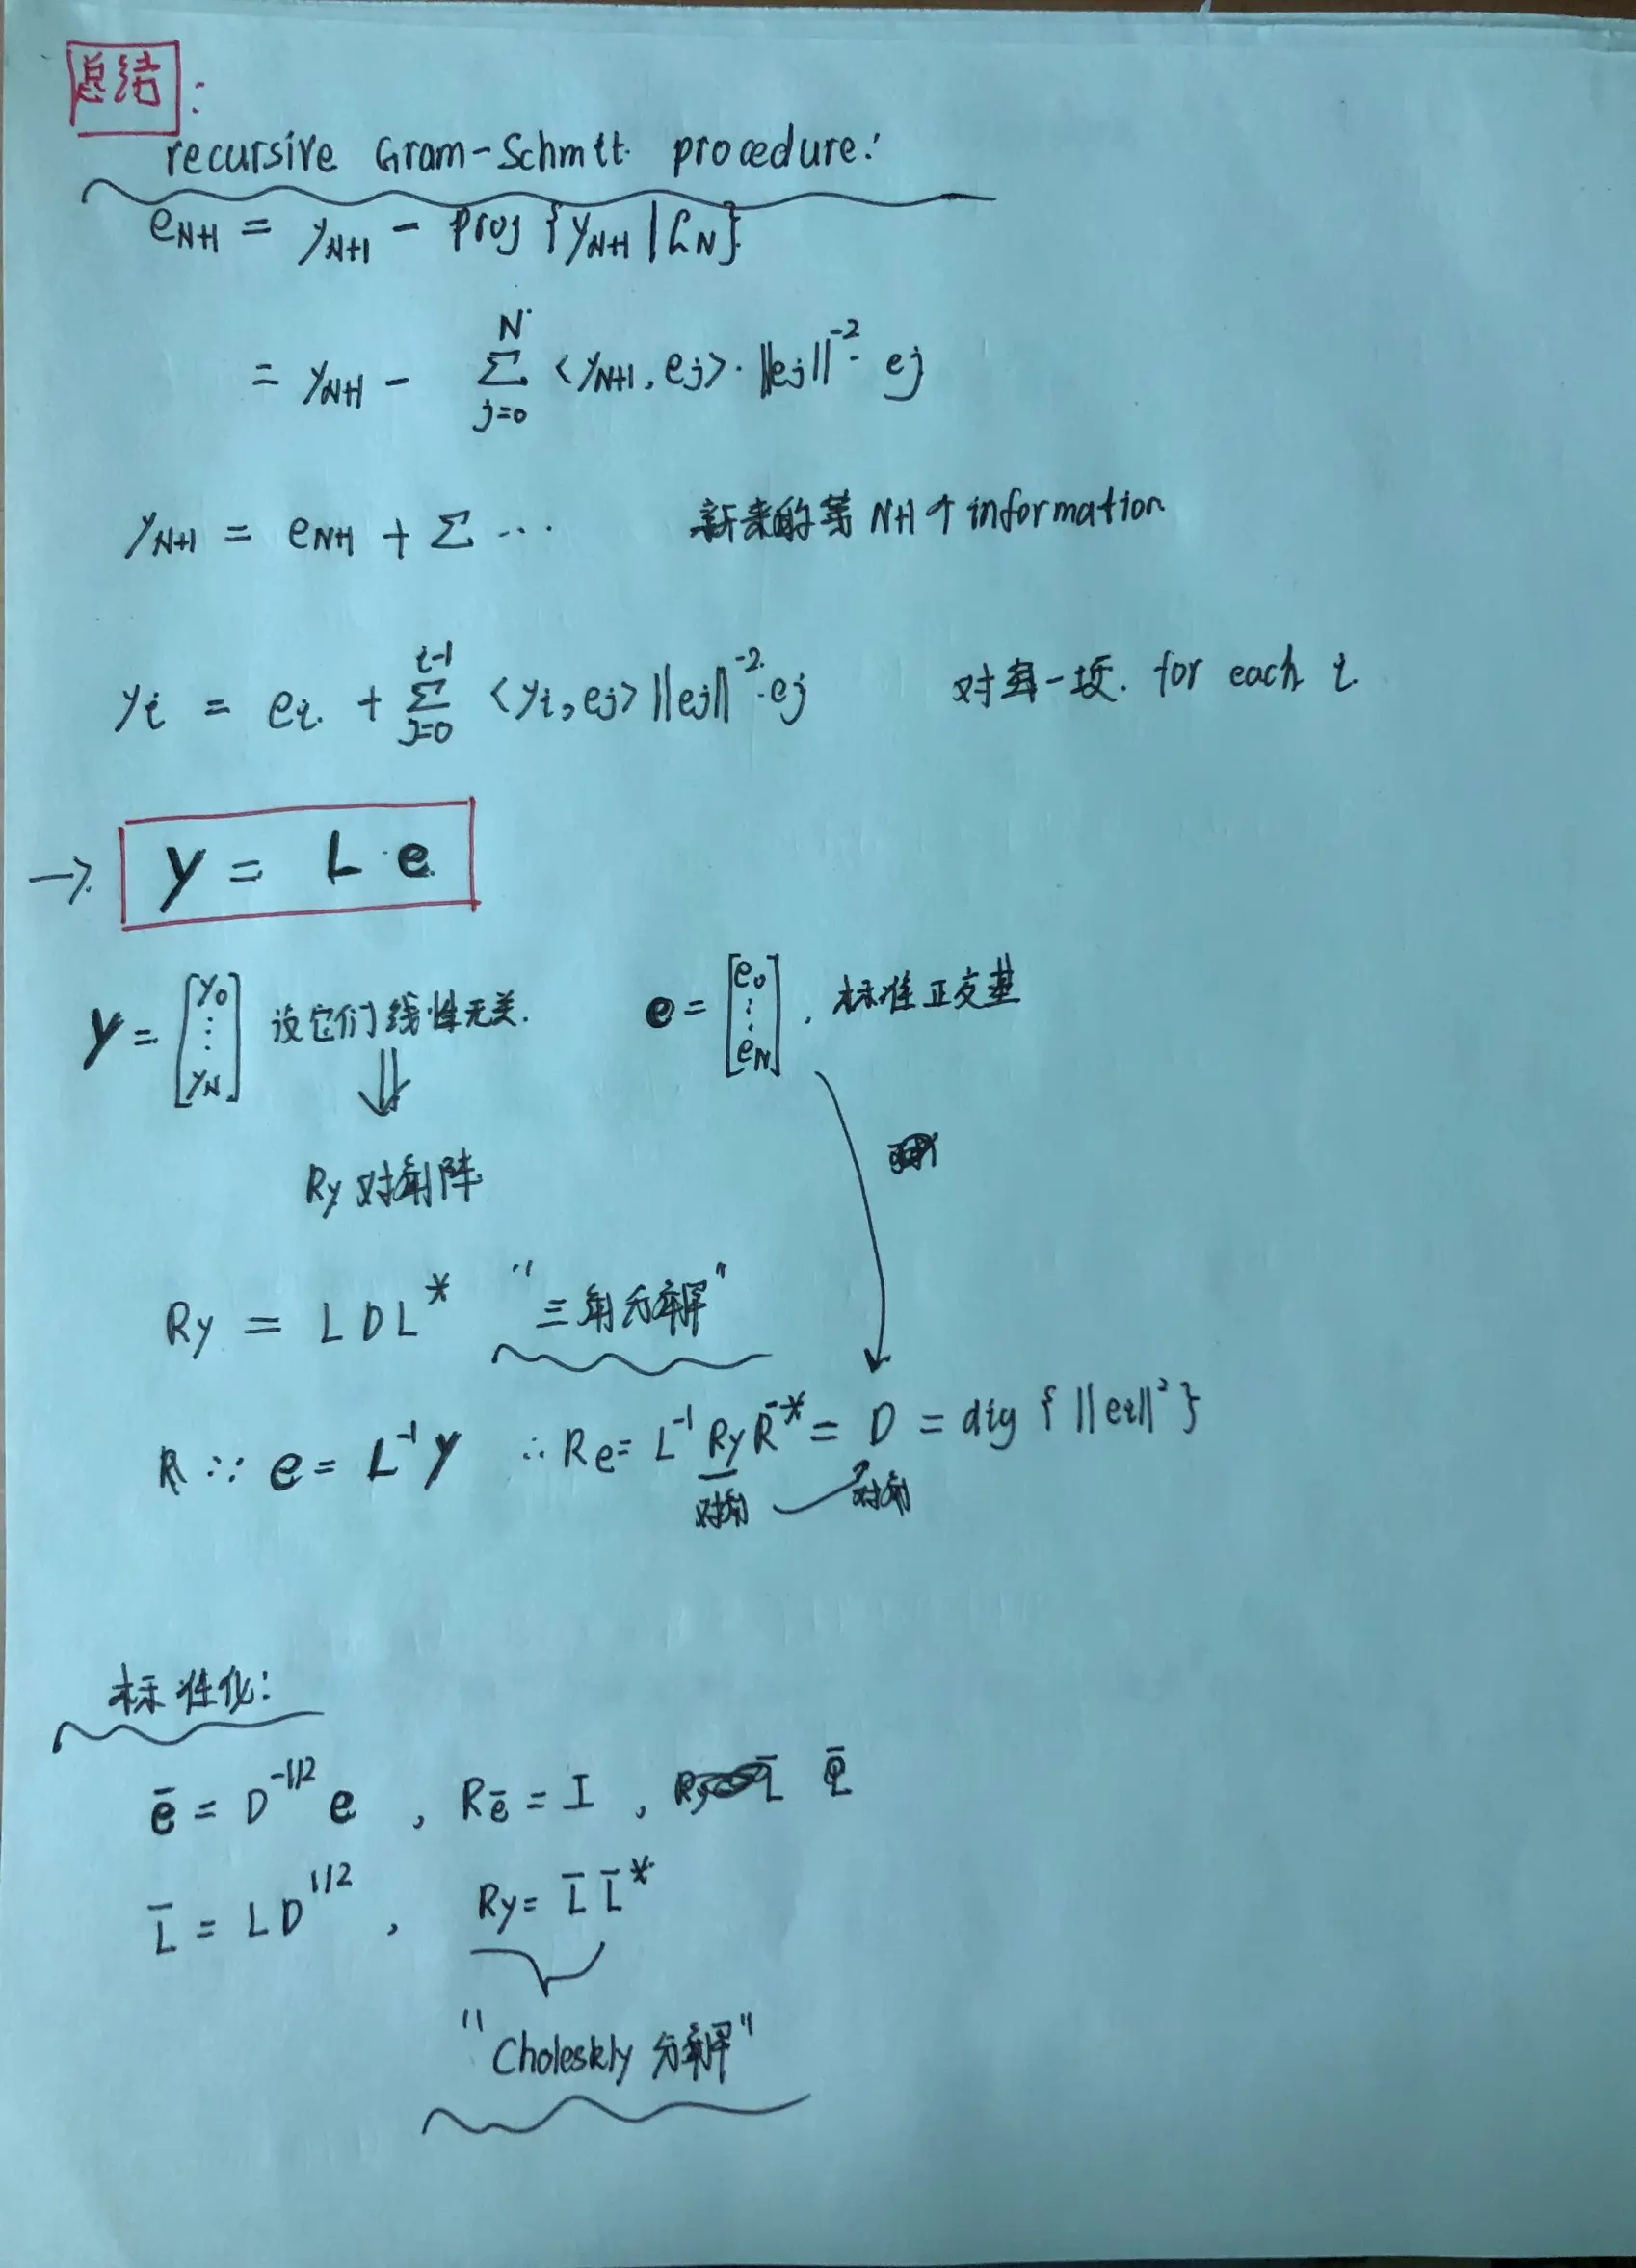 总结:
recursive Gram-Schmitt procedure:
e_{N+1} = y_{N+1} - proj {y_{N+1} | ℒ_N}
= y_{N+1} - \sum_{j=0}^{N} <y_{N+1}, e_j> · ||e_j||^{-2} · e_j
y_{N+1} = e_{N+1} + Σ ··· 新来的第 N+1 个 information
y_i = e_i + \sum_{j=0}^{i-1} <y_i, e_j> ||e_j||^{-2} · e_j 对每一项. for each i.
→ y = L · e
y = [y_0 ⋮ y_N] 设它们线性无关. e = [e_0 ⋮ e_N], 标准正交基
⇓
R_y 对角阵
R_y = L D L^* "三角分解"
R ∵ e = L^{-1} y ∴ R_e = L^{-1} R_y R^{-*} = D = dig { ||e_i||^2 }
对角 对角
标准化:
ē = D^{-1/2} e , R_ē = I ,
L̄ = L D^{1/2} , R_y = L̄ L̄^*
"Choleskly 分解"